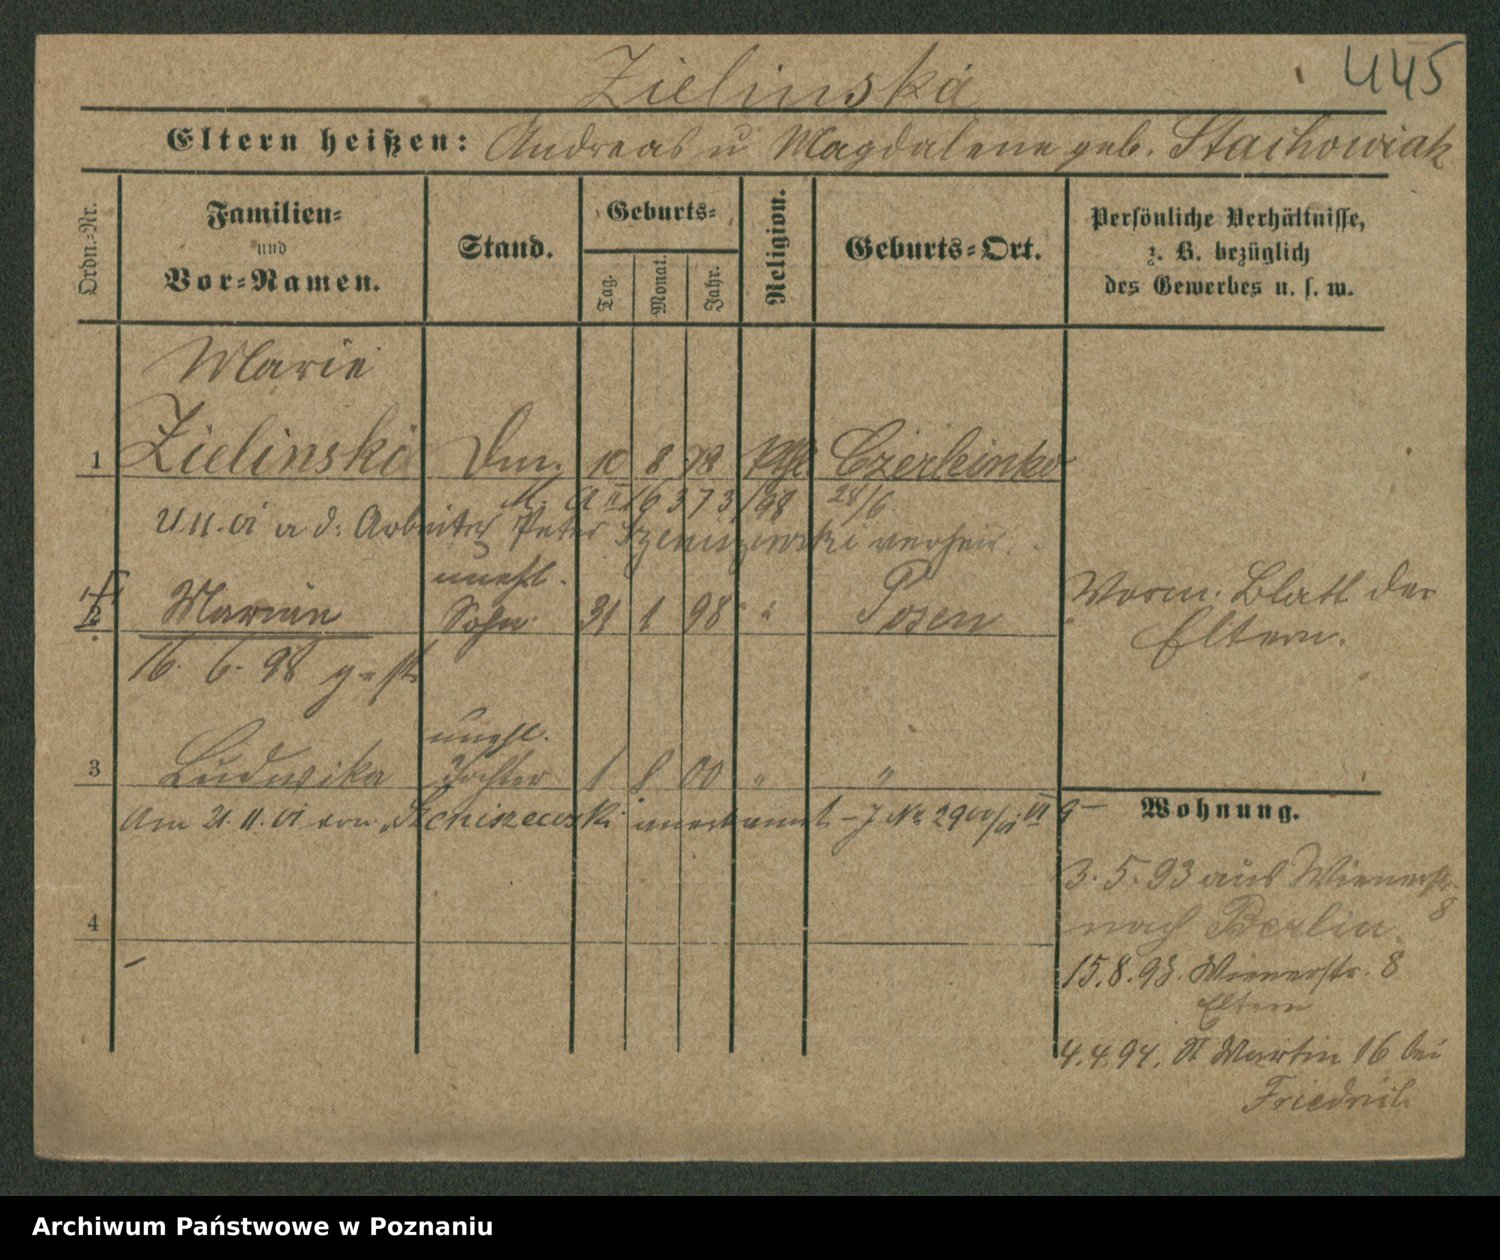 445
Zielinska
Eltern heißen: Andreas u Magdalene geb. Stachowiak
Ordn.-Nr.
Familien- und Vor-Namen.
Stand.
Geburts-
Tag. Monat. Jahr.
Religion.
Geburts-Ort.
Persönliche Verhältnisse,
z. B. bezüglich
des Gewerbes u. s. w.
Marie
1 Zielinska 10 8 78
16373/98 28/6.
a d. Arbeiter Peter verheir.
unehl.
2 Marian Sohn 31 1 98 " Posen
Vorm. Blatt der
Eltern.
16. 6. 98 gest.
unehl.
3 Ludwika Tochter 1 8 00 " "
Am 21. 11. von Szeniszewski anerkannt
Wohnung.
3. 5. 93 aus Wienerstr.
8
nach Berlin.
4
15. 8. 93. Wienerstr. 8
Eltern
4. 4. 94. St Martin 16 bei
Friedrich
Archiwum Państwowe w Poznaniu